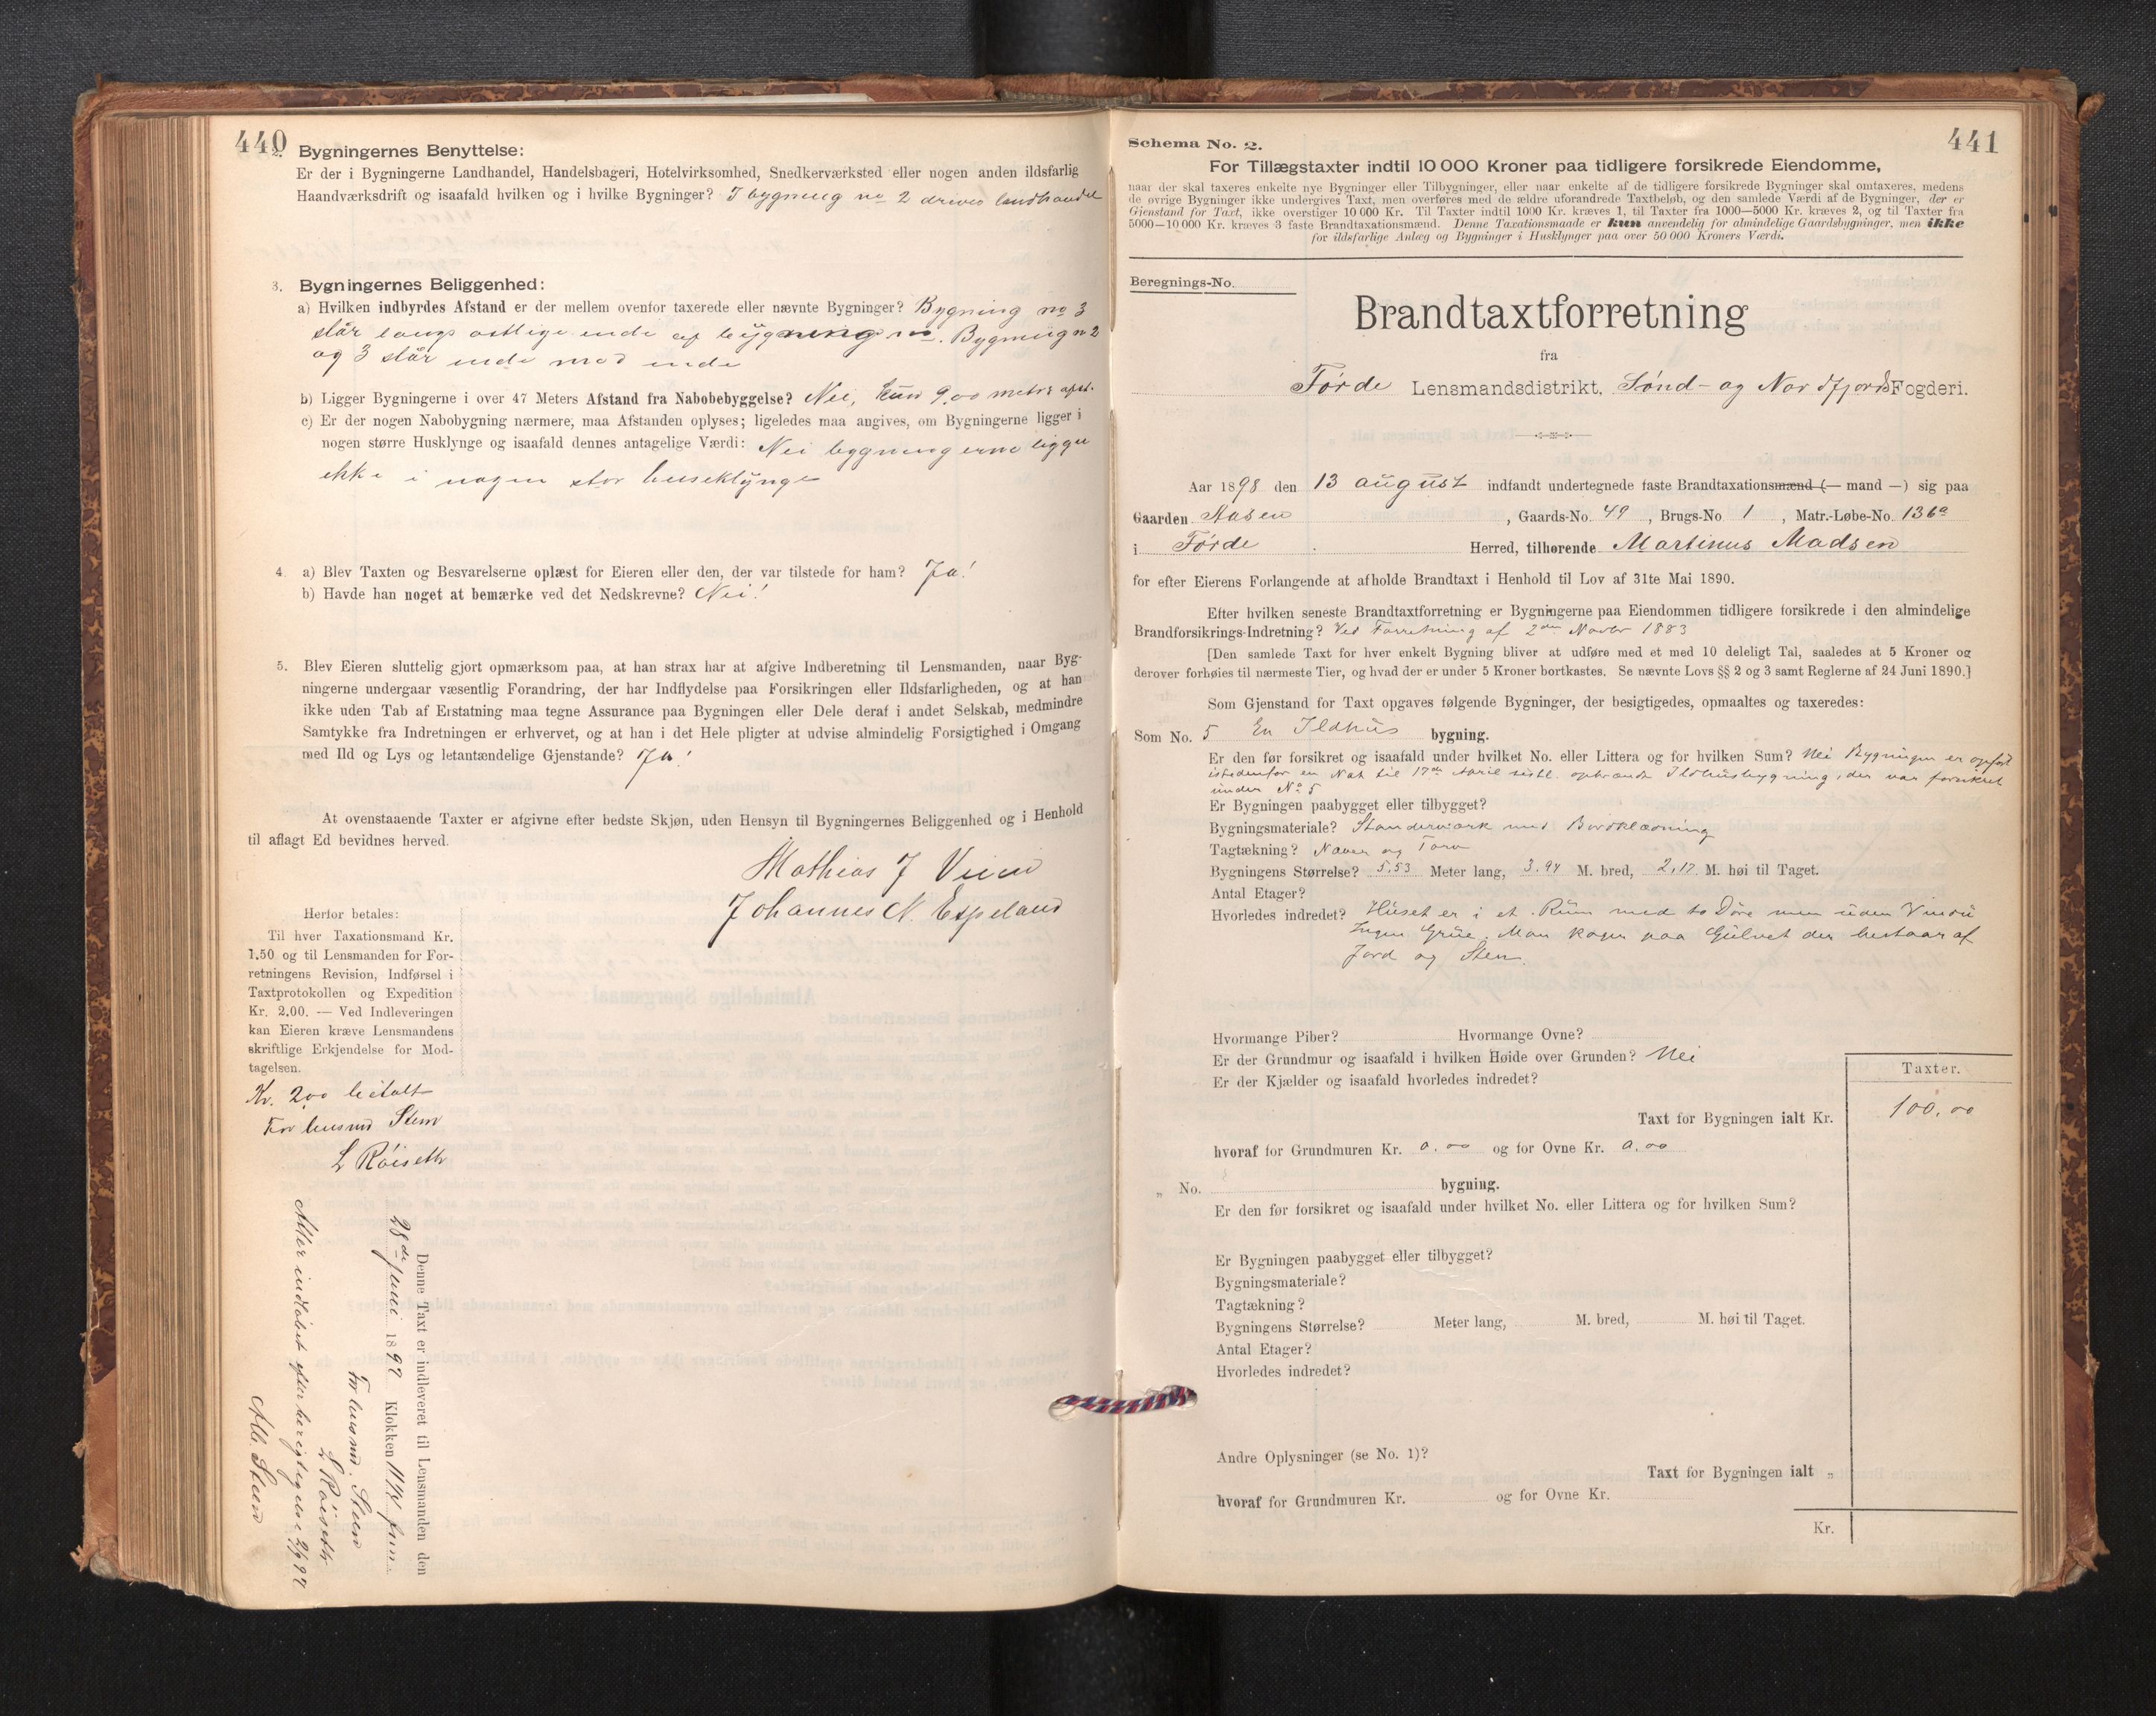 440
2. Bygningernes Benyttelse:
Er der i Bygningerne Landhandel, Handelsbageri, Hotelvirksomhed, Snedkerværksted eller nogen anden ildsfarlig
Haandværksdrift og isaafald hvilken og i hvilke Bygninger? I bygning no 2 drives landhandel
3. Bygningernes Beliggenhed:
a) Hvilken indbyrdes Afstand er der mellem ovenfor taxerede eller nævnte Bygninger? Bygning no 3
står langs østlige ende af bygning no. Bygning n 2
og 3 står ende mod ende
b) Ligger Bygningerne i over 47 Meters Afstand fra Nabobebyggelse? Nei, kun 9,00 metrs afst.
c) Er der nogen Nabobygning nærmere, maa Afstanden oplyses; ligeledes maa angives, om Bygningerne ligger i
nogen større Husklynge og isaafald dennes antagelige Værdi: Nei bygningerne ligger
ikke i nogen stor huseklynge
4. a) Blev Taxten og Besvarelserne oplæst for Eieren eller den, der var tilstede for ham? Ja!
b) Havde han noget at bemærke ved det Nedskrevne? Nei!
5. Blev Eieren sluttelig gjort opmærksom paa, at han strax har at afgive Indberetning til Lensmanden, naar Byg-
ningerne undergaar væsentlig Forandring, der har Indflydelse paa Forsikringen eller Ildsfarligheden, og at han
ikke uden Tab af Erstatning maa tegne Assurance paa Bygningen eller Dele deraf i andet Selskab, medmindre
Samtykke fra Indretningen er erhvervet, og at han i det Hele pligter at udvise almindelig Forsigtighed i Omgang
med Ild og Lys og letantændelige Gjenstande? Ja!
At ovenstaaende Taxter er afgivne efter bedste Skjøn, uden Hensyn til Bygningernes Beliggenhed og i Henhold
til aflagt Ed bevidnes herved.
Mathias J
Johannes N. Espeland
Herfor betales:
Til hver Taxationsmand Kr.
1.50 og til Lensmanden for For-
retningens Revision, Indførsel i
Taxtprotokollen og Expedition
Kr. 2.00. — Ved Indleveringen
kan Eieren kræve Lensmandens
skriftlige Erkjendelse for Mod-
tagelsen.
Kr. 2,00 betalt
For lensmd Steen
L Röiseth
Denne Taxt er indleveret til Lensmanden den
28de juni 1892 Klokken 11 1/2 fm.
For lensmd. Steen
L Röiseth
Atter indløbet efter berigtigelse 2/9 92
Alb. Steen
441
Schema No. 2.
For Tillægstaxter indtil 10 000 Kroner paa tidligere forsikrede Eiendomme,
naar der skal taxeres enkelte nye Bygninger eller Tilbygninger, eller naar enkelte af de tidligere forsikrede Bygninger skal omtaxeres, medens
de øvrige Bygninger ikke undergives Taxt, men overføres med de ældre uforandrede Taxtbeløb, og den samlede Værdi af de Bygninger, der er
Gjenstand for Taxt, ikke overstiger 10 000 Kr. Til Taxter indtil 1000 Kr. kræves 1, til Taxter fra 1000—5000 Kr. kræves 2, og til Taxter fra
5000—10 000 Kr. kræves 3 faste Brandtaxationsmænd. Denne Taxationsmaade er kun anvendelig for almindelige Gaardsbygninger, men ikke
for ildsfarlige Anlæg og Bygninger i Husklynger paa over 50 000 Kroners Værdi.
Beregnings-No.
Brandtaxtforretning
fra
Førde Lensmandsdistrikt, Sønd- og Nordfjords Fogderi.
Aar 1898 den 13 august indfandt undertegnede faste Brandtaxationsmænd (— mand —) sig paa
Gaarden Aasen, Gaards-No. 49, Brugs-No 1, Matr.-Løbe-No. 136a
i Førde Herred, tilhørende Martinus Madsen
for efter Eierens Forlangende at afholde Brandtaxt i Henhold til Lov af 31te Mai 1890.
Efter hvilken seneste Brandtaxtforretning er Bygningerne paa Eiendommen tidligere forsikrede i den almindelige
Brandforsikrings-Indretning? Ved Forretning af 2den Novbr 1883
[Den samlede Taxt for hver enkelt Bygning bliver at udføre med et med 10 deleligt Tal, saaledes at 5 Kroner og
derover forhøies til nærmeste Tier, og hvad der er under 5 Kroner bortkastes. Se nævnte Lovs §§ 2 og 3 samt Reglerne af 24 Juni 1890.]
Som Gjenstand for Taxt opgaves følgende Bygninger, der besigtigedes, opmaaltes og taxeredes:
Som No. 5 En Ildhus bygning.
Er den før forsikret og isaafald under hvilket No. eller Littera og for hvilken Sum? Nei Bygningen er opført
istedenfor en Nat til 17de April sistl. opbrændt Ildhusbygning, der var forsikret
under No 5
Er Bygningen paabygget eller tilbygget?
Bygningsmateriale? Standerværk med Bordklædning
Tagtækning? Næver og Torv
Bygningens Størrelse? 5,53 Meter lang, 3,94 M. bred, 2,17 M. høi til Taget.
Antal Etager?
Hvorledes indredet? Huset er i et Rum med to Døre men uden Vindu
Ingen Grue. Man koger paa Gulvet der bestaar af
Jord og Sten.
Hvormange Piber? Hvormange Ovne?
Er der Grundmur og isaafald i hvilken Høide over Grunden? Nei
Er der Kjælder og isaafald hvorledes indredet?
Taxter.
Taxt for Bygningen ialt Kr. 100,00
hvoraf for Grundmuren Kr. 0.00 og for Ovne Kr. 0.00
„ No. bygning.
Er den før forsikret og isaafald under hvilket No. eller Littera og for hvilken Sum?
Er Bygningen paabygget eller tilbygget?
Bygningsmateriale?
Tagtækning?
Bygningens Størrelse? Meter lang, M. bred, M. høi til Taget.
Antal Etager?
Hvorledes indredet?
Andre Oplysninger (se No. 1)?
Taxt for Bygningen ialt „
hvoraf for Grundmuren Kr. og for Ovne Kr.
Kr.